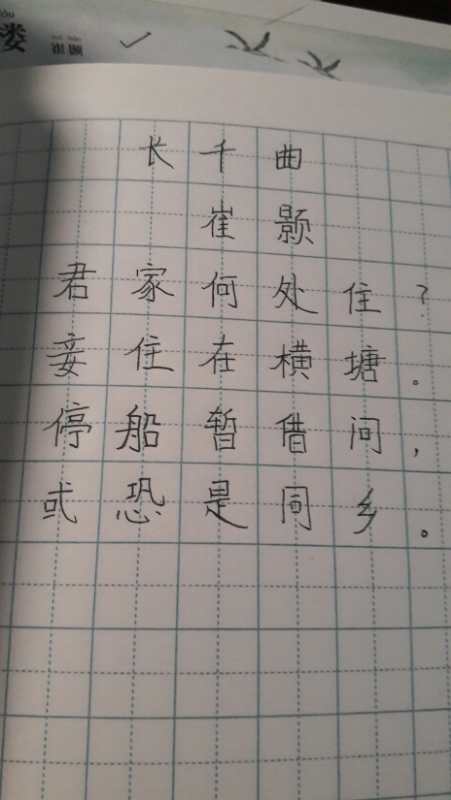 长千曲
崔颢
君家何处住？
妾住在横塘。
停船暂借问，
或恐是同乡。